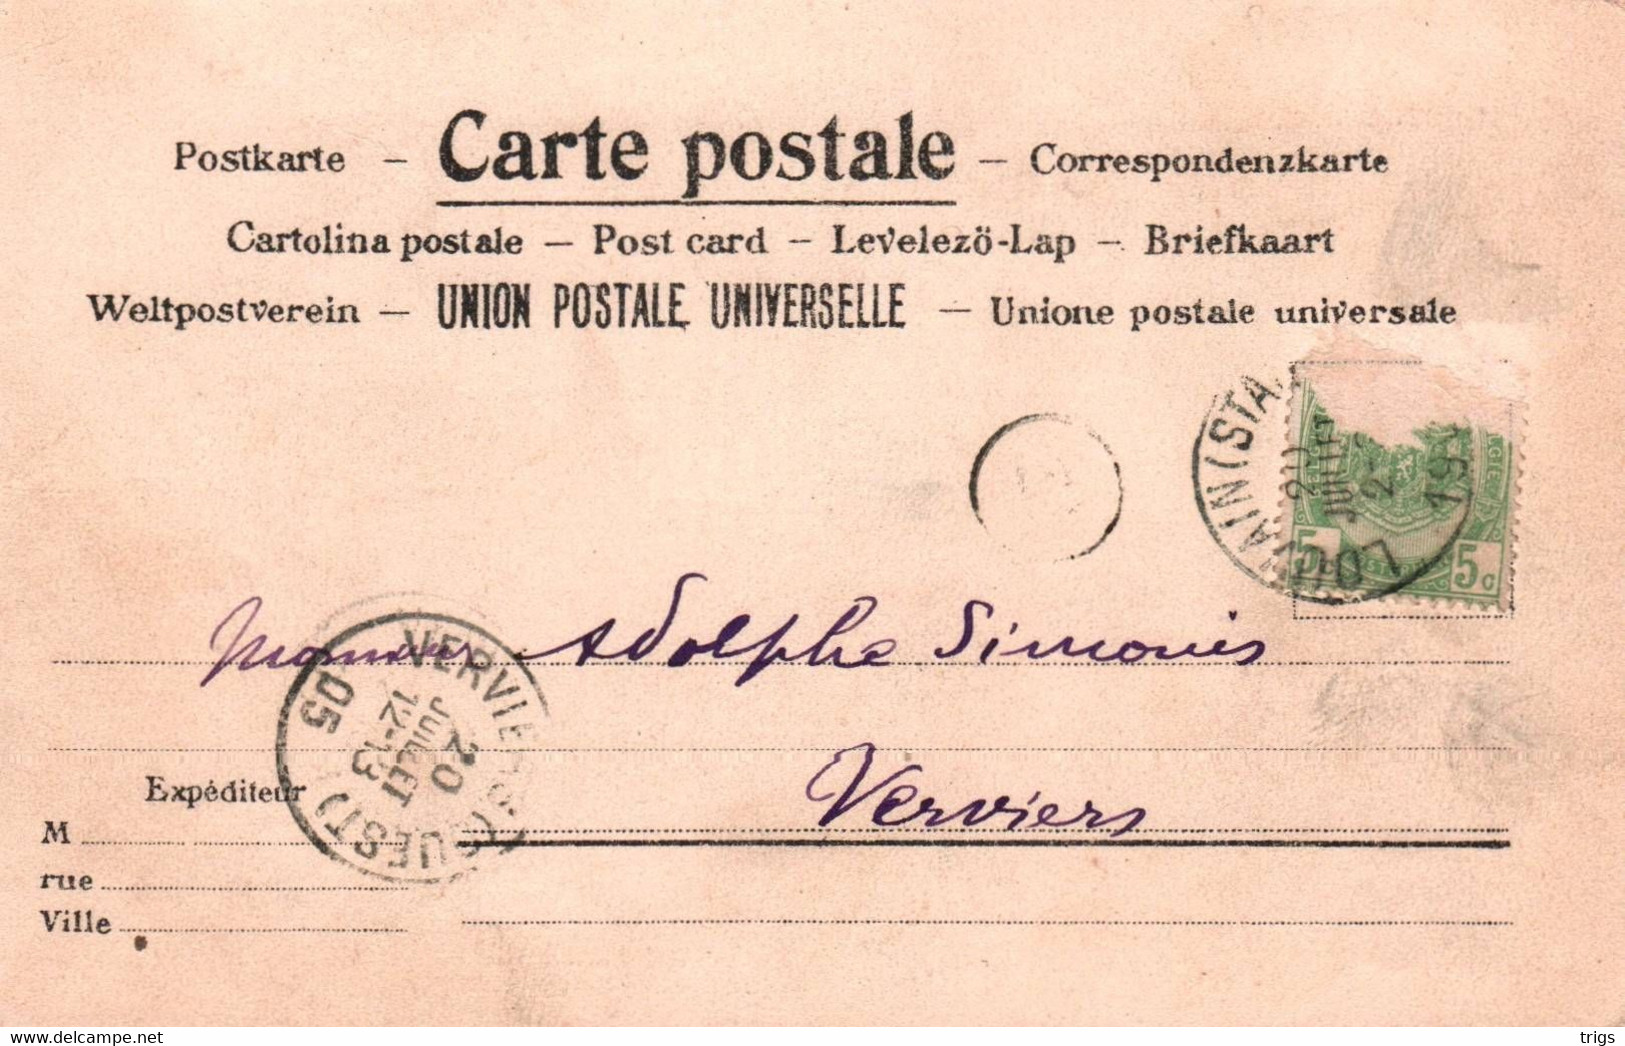 Postkarte – Carte postale – Correspondenzkarte
Cartolina postale – Post card – Levelezö-Lap – Briefkaart
Weltpostverein – UNION POSTALE UNIVERSELLE – Unione postale universale
LOUVAIN (STA
20
JUILLET
19
5c 5c
Adolphe Simonis
VERVIERS (OUEST)
20
JUILLET
12-13
05
Verviers
Expéditeur
M
rue
Ville
www.delcampe.net
trigs